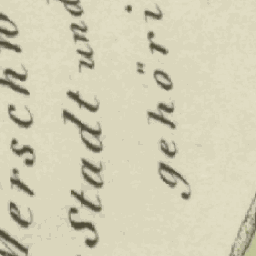 Merschw
Stadt und
gehöri